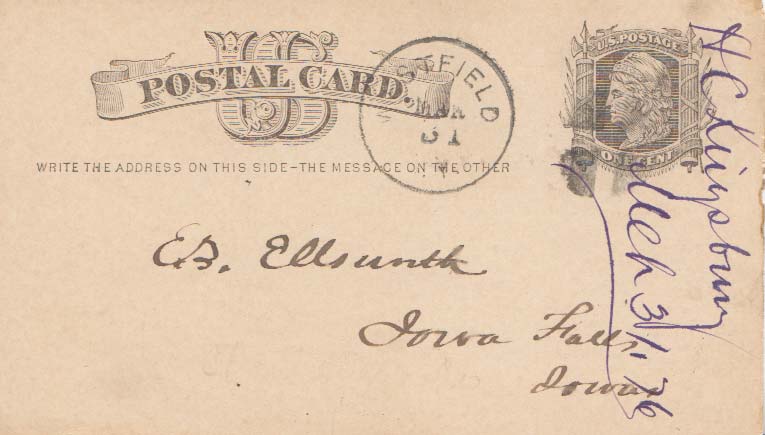 US
POSTAL CARD.
FIELD
MAR
31
U.S. POSTAGE
ONE CENT
WRITE THE ADDRESS ON THIS SIDE-THE MESSAGE ON THE OTHER
E.B. Ellsworth
Iowa Falls,
Iowa
H C Kingsbury
Mch 31, 76